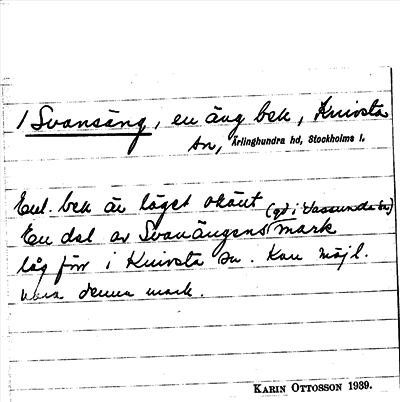 / Svansäng, en äng bek, Knivsta
sn, Ärlinghundra hd, Stockholms l.
Enl. bek är läget okänt
(nu i Vassunda sn)
En del av Svanängens mark
låg förr i Knivsta sn. Kan möjl.
vara denna mark.
KARIN OTTOSSON 1939.